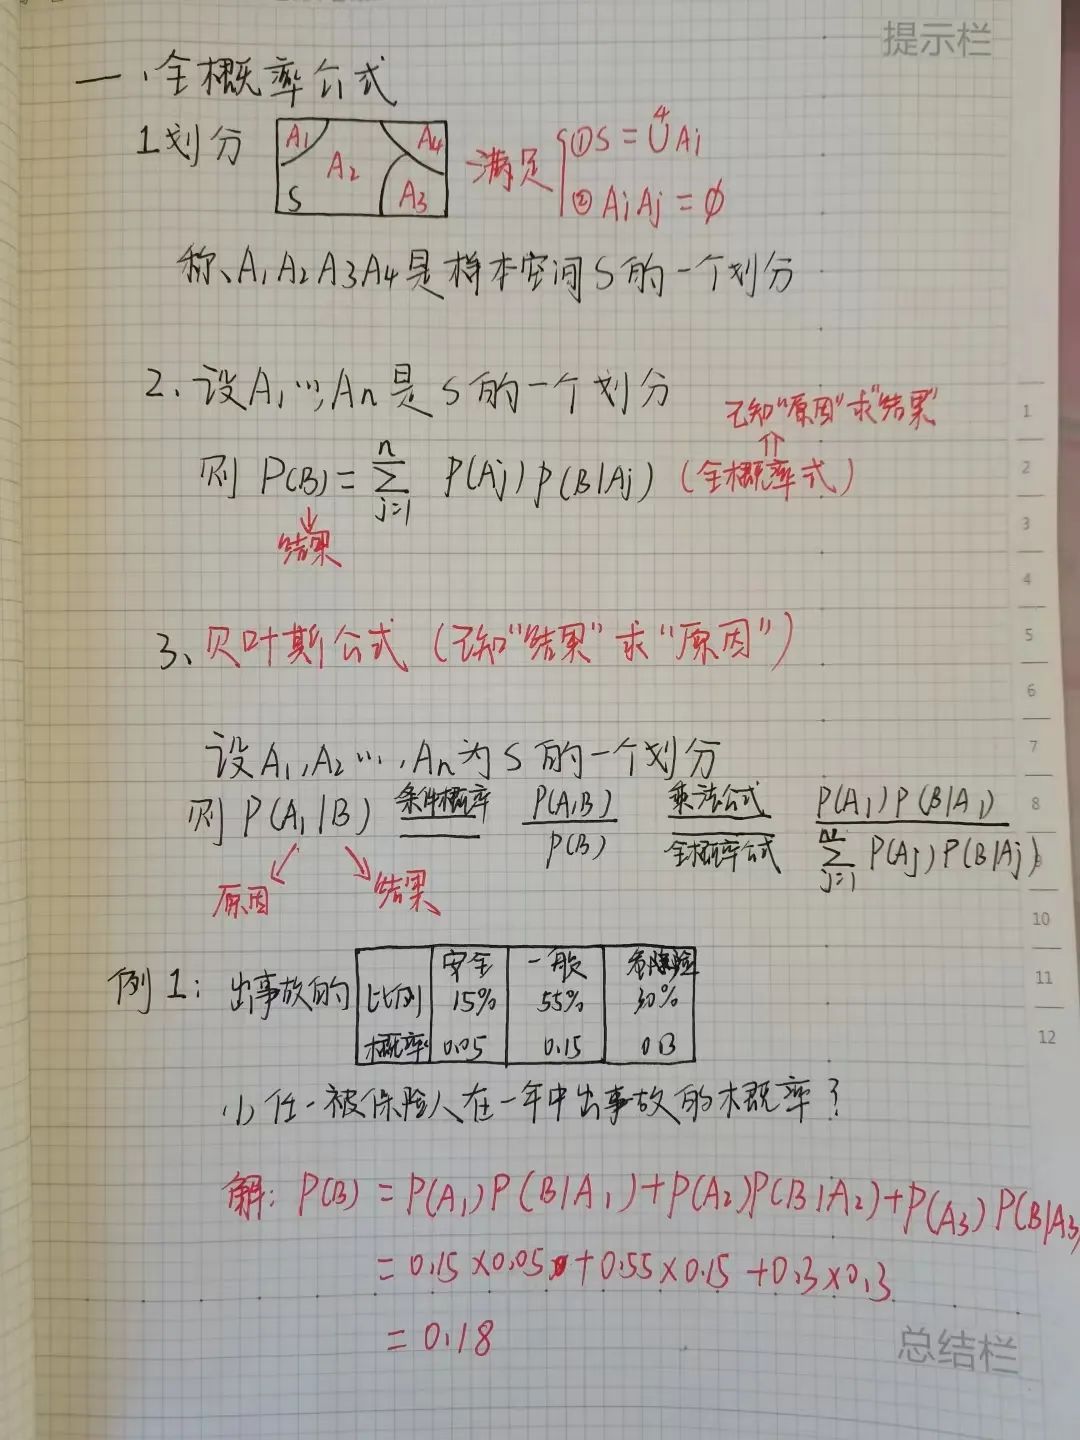 提示栏
一、全概率公式
1划分 A1 A2 A3 A4 S 满足 ①S = ⋃⁴Ai
②AiAj = ∅
称、A1A2A3A4是样本空间S的一个划分
2、设A1…,An是S的一个划分
已知"原因"求"结果"
⇑
则 P(B) = ∑_{j=1}^{n} P(Aj)P(B|Aj) (全概率式)
↓
结果
3、贝叶斯公式(已知"结果"求"原因")
设A1,A2…,An为S的一个划分
则 P(A1|B) 条件概率 P(A1B)/P(B) 乘法公式 全概率公式 P(A1)P(B|A1)/∑_{j=1}^{n} P(Aj)P(B|Aj)
原因 结果
安全 一般 危险
例1: 出事故的 比例 15% 55% 30%
概率 0.05 0.15 0.3
(1) 任一被保险人在一年中出事故的概率?
解: P(B) = P(A1)P(B|A1)+P(A2)P(B|A2)+P(A3)P(B|A3)
= 0.15×0.05+0.55×0.15+0.3×0.3
= 0.18
总结栏
1
2
3
4
5
6
7
8
9
10
11
12